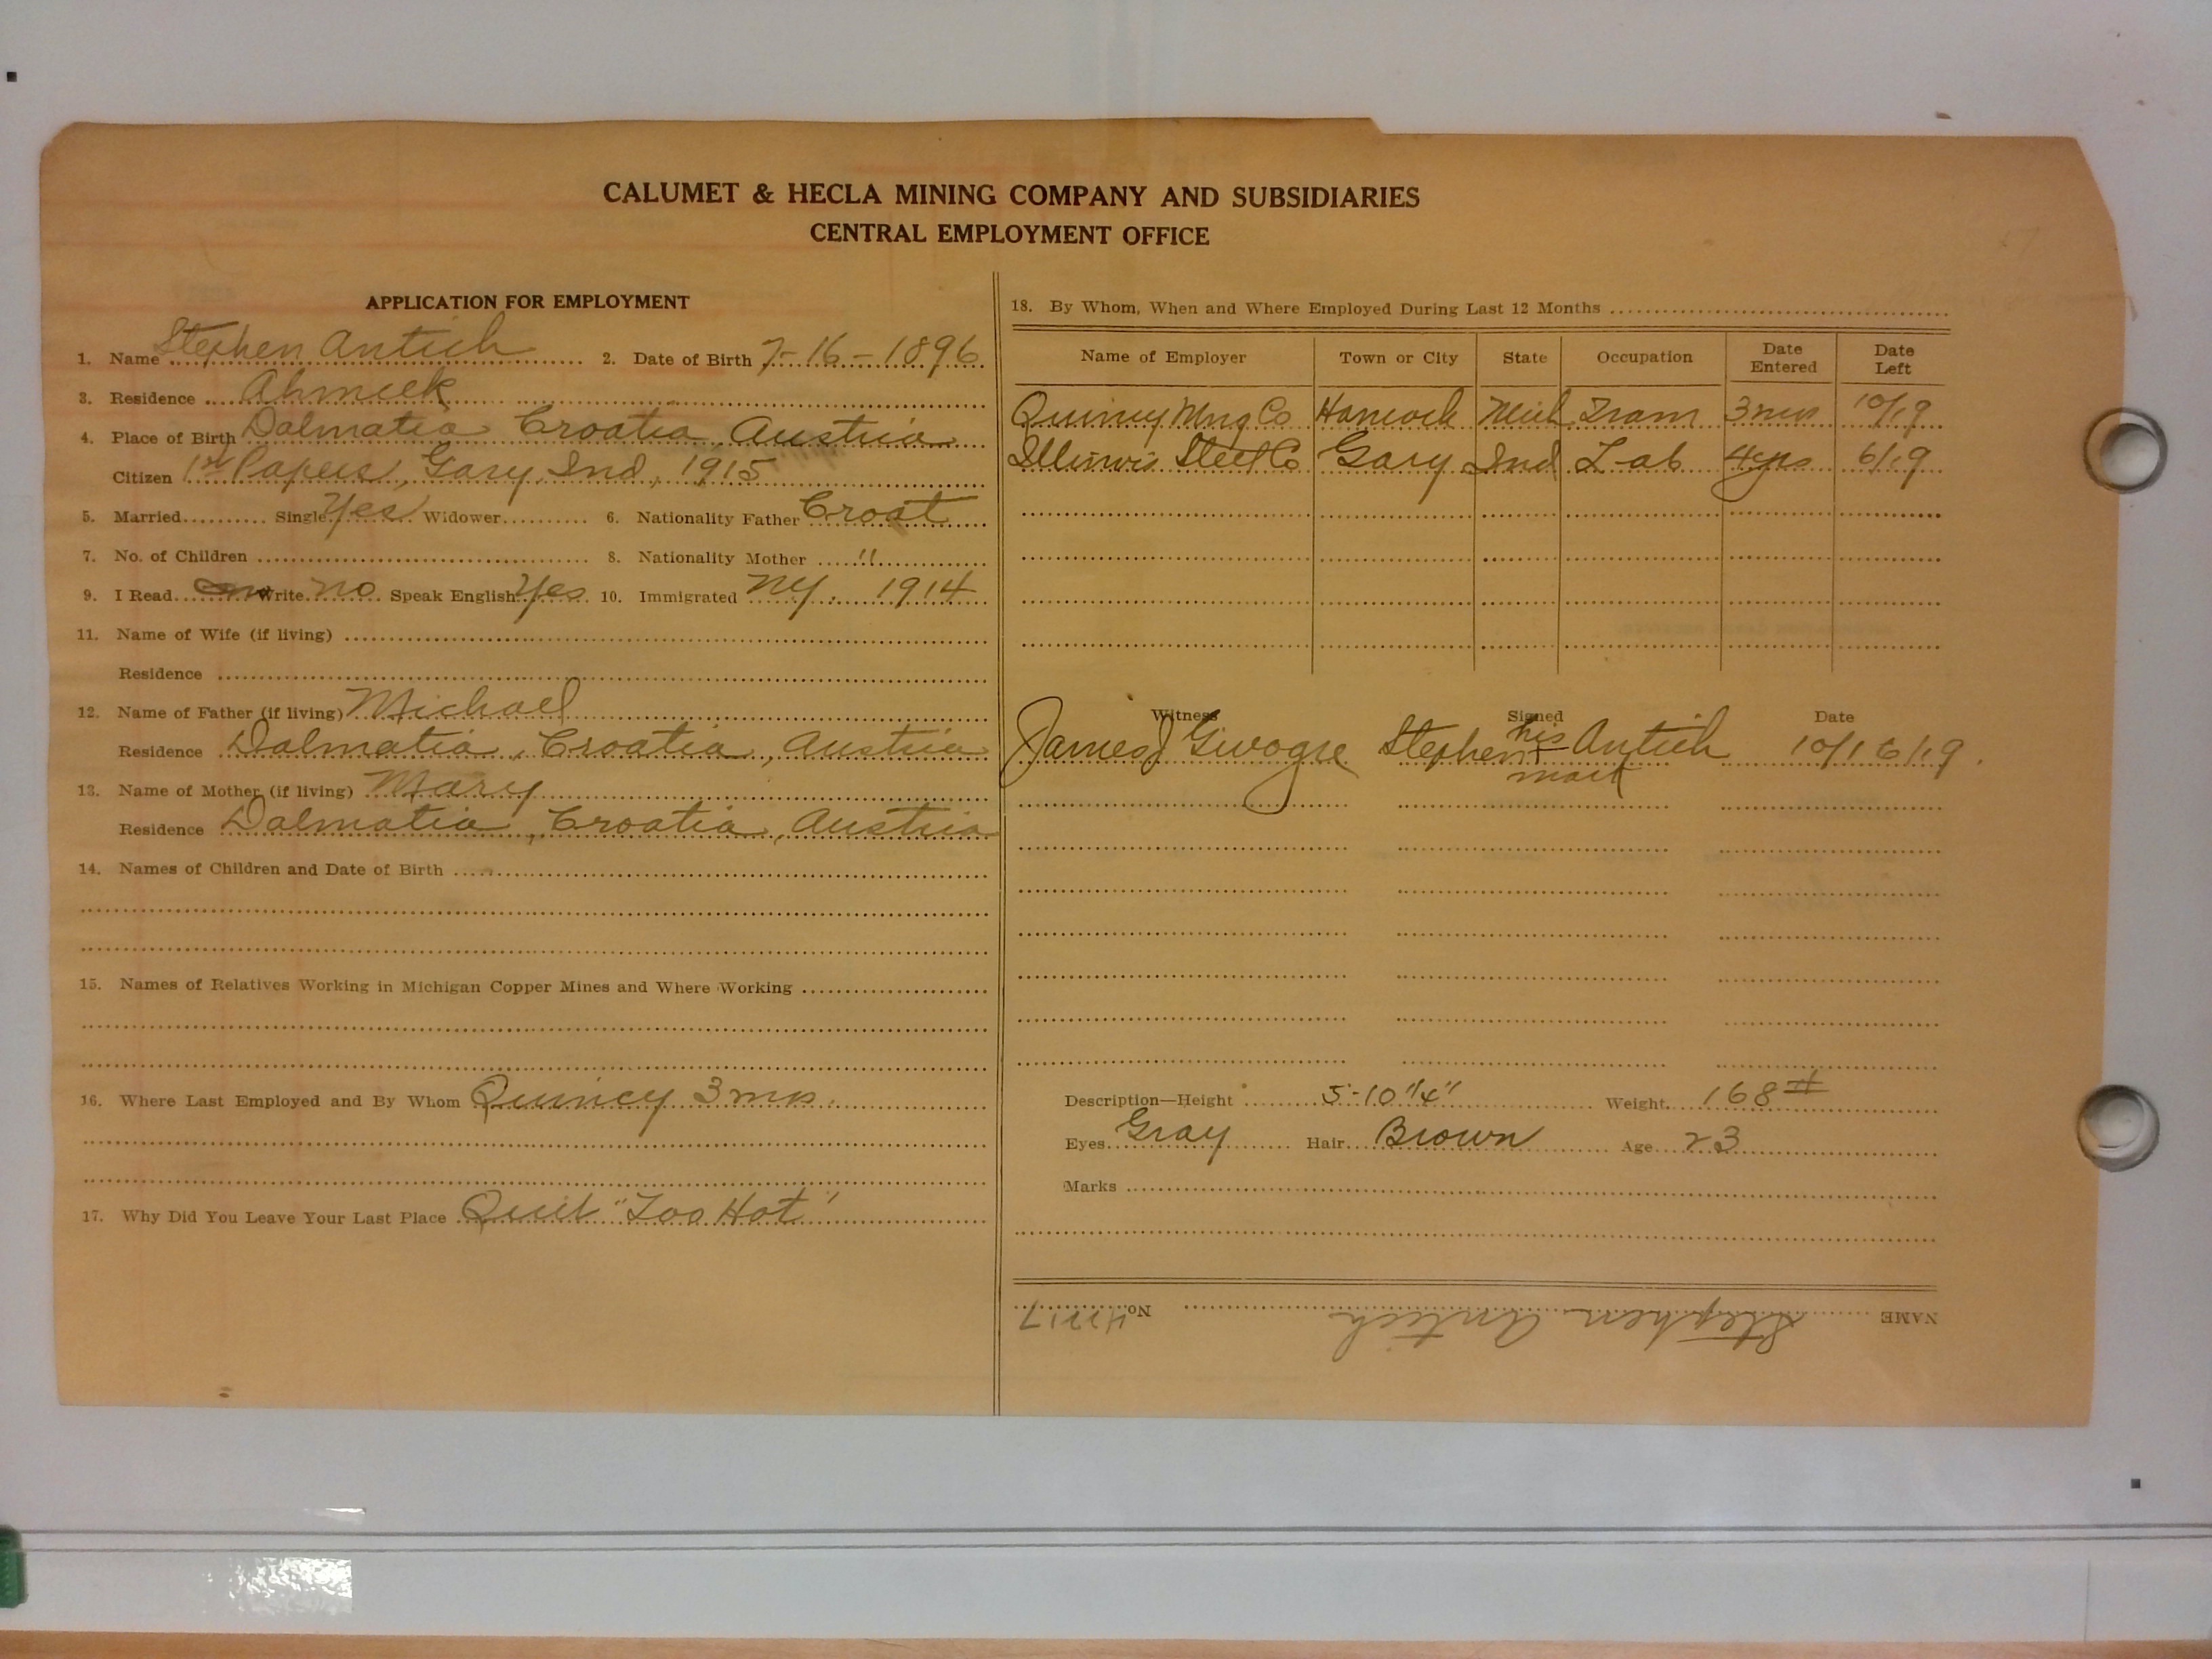 CALUMET & HECLA MINING COMPANY AND SUBSIDIARIES
CENTRAL EMPLOYMENT OFFICE
APPLICATION FOR EMPLOYMENT
1. Name Stephen Antich 2. Date of Birth 7-16-1896
3. Residence Ahmeek
4. Place of Birth Dalmatia Croatia, Austria
Citizen 1st Papers, Gary, Ind, 1915
5. Married Single Yes Widower 6. Nationality Father Croat
7. No. of Children 8. Nationality Mother "
9. I Read Write no Speak English Yes 10. Immigrated NY. 1914
11. Name of Wife (if living)
Residence
12. Name of Father (if living) Michael
Residence Dalmatia, Croatia, Austria
13. Name of Mother (if living) Mary
Residence Dalmatia, Croatia, Austria
14. Names of Children and Date of Birth
15. Names of Relatives Working in Michigan Copper Mines and Where Working
16. Where Last Employed and By Whom Quincy 3 mos.
17. Why Did You Leave Your Last Place Quit "Too Hot"
18. By Whom, When and Where Employed During Last 12 Months
Name of Employer Town or City State Occupation Date Entered Date Left
Quincy Mng Co Hancock Mich Tram 3 mos 10/19
Illinois Steel Co Gary Ind Lab 4 yrs 6/19
Witness Signed Date
James J Stephen his + mark Antich 10/16/19.
Description—Height 5-10 1/4" Weight 168 #
Eyes Gray Hair Brown Age 23
Marks
NAME Stephen Antich No.